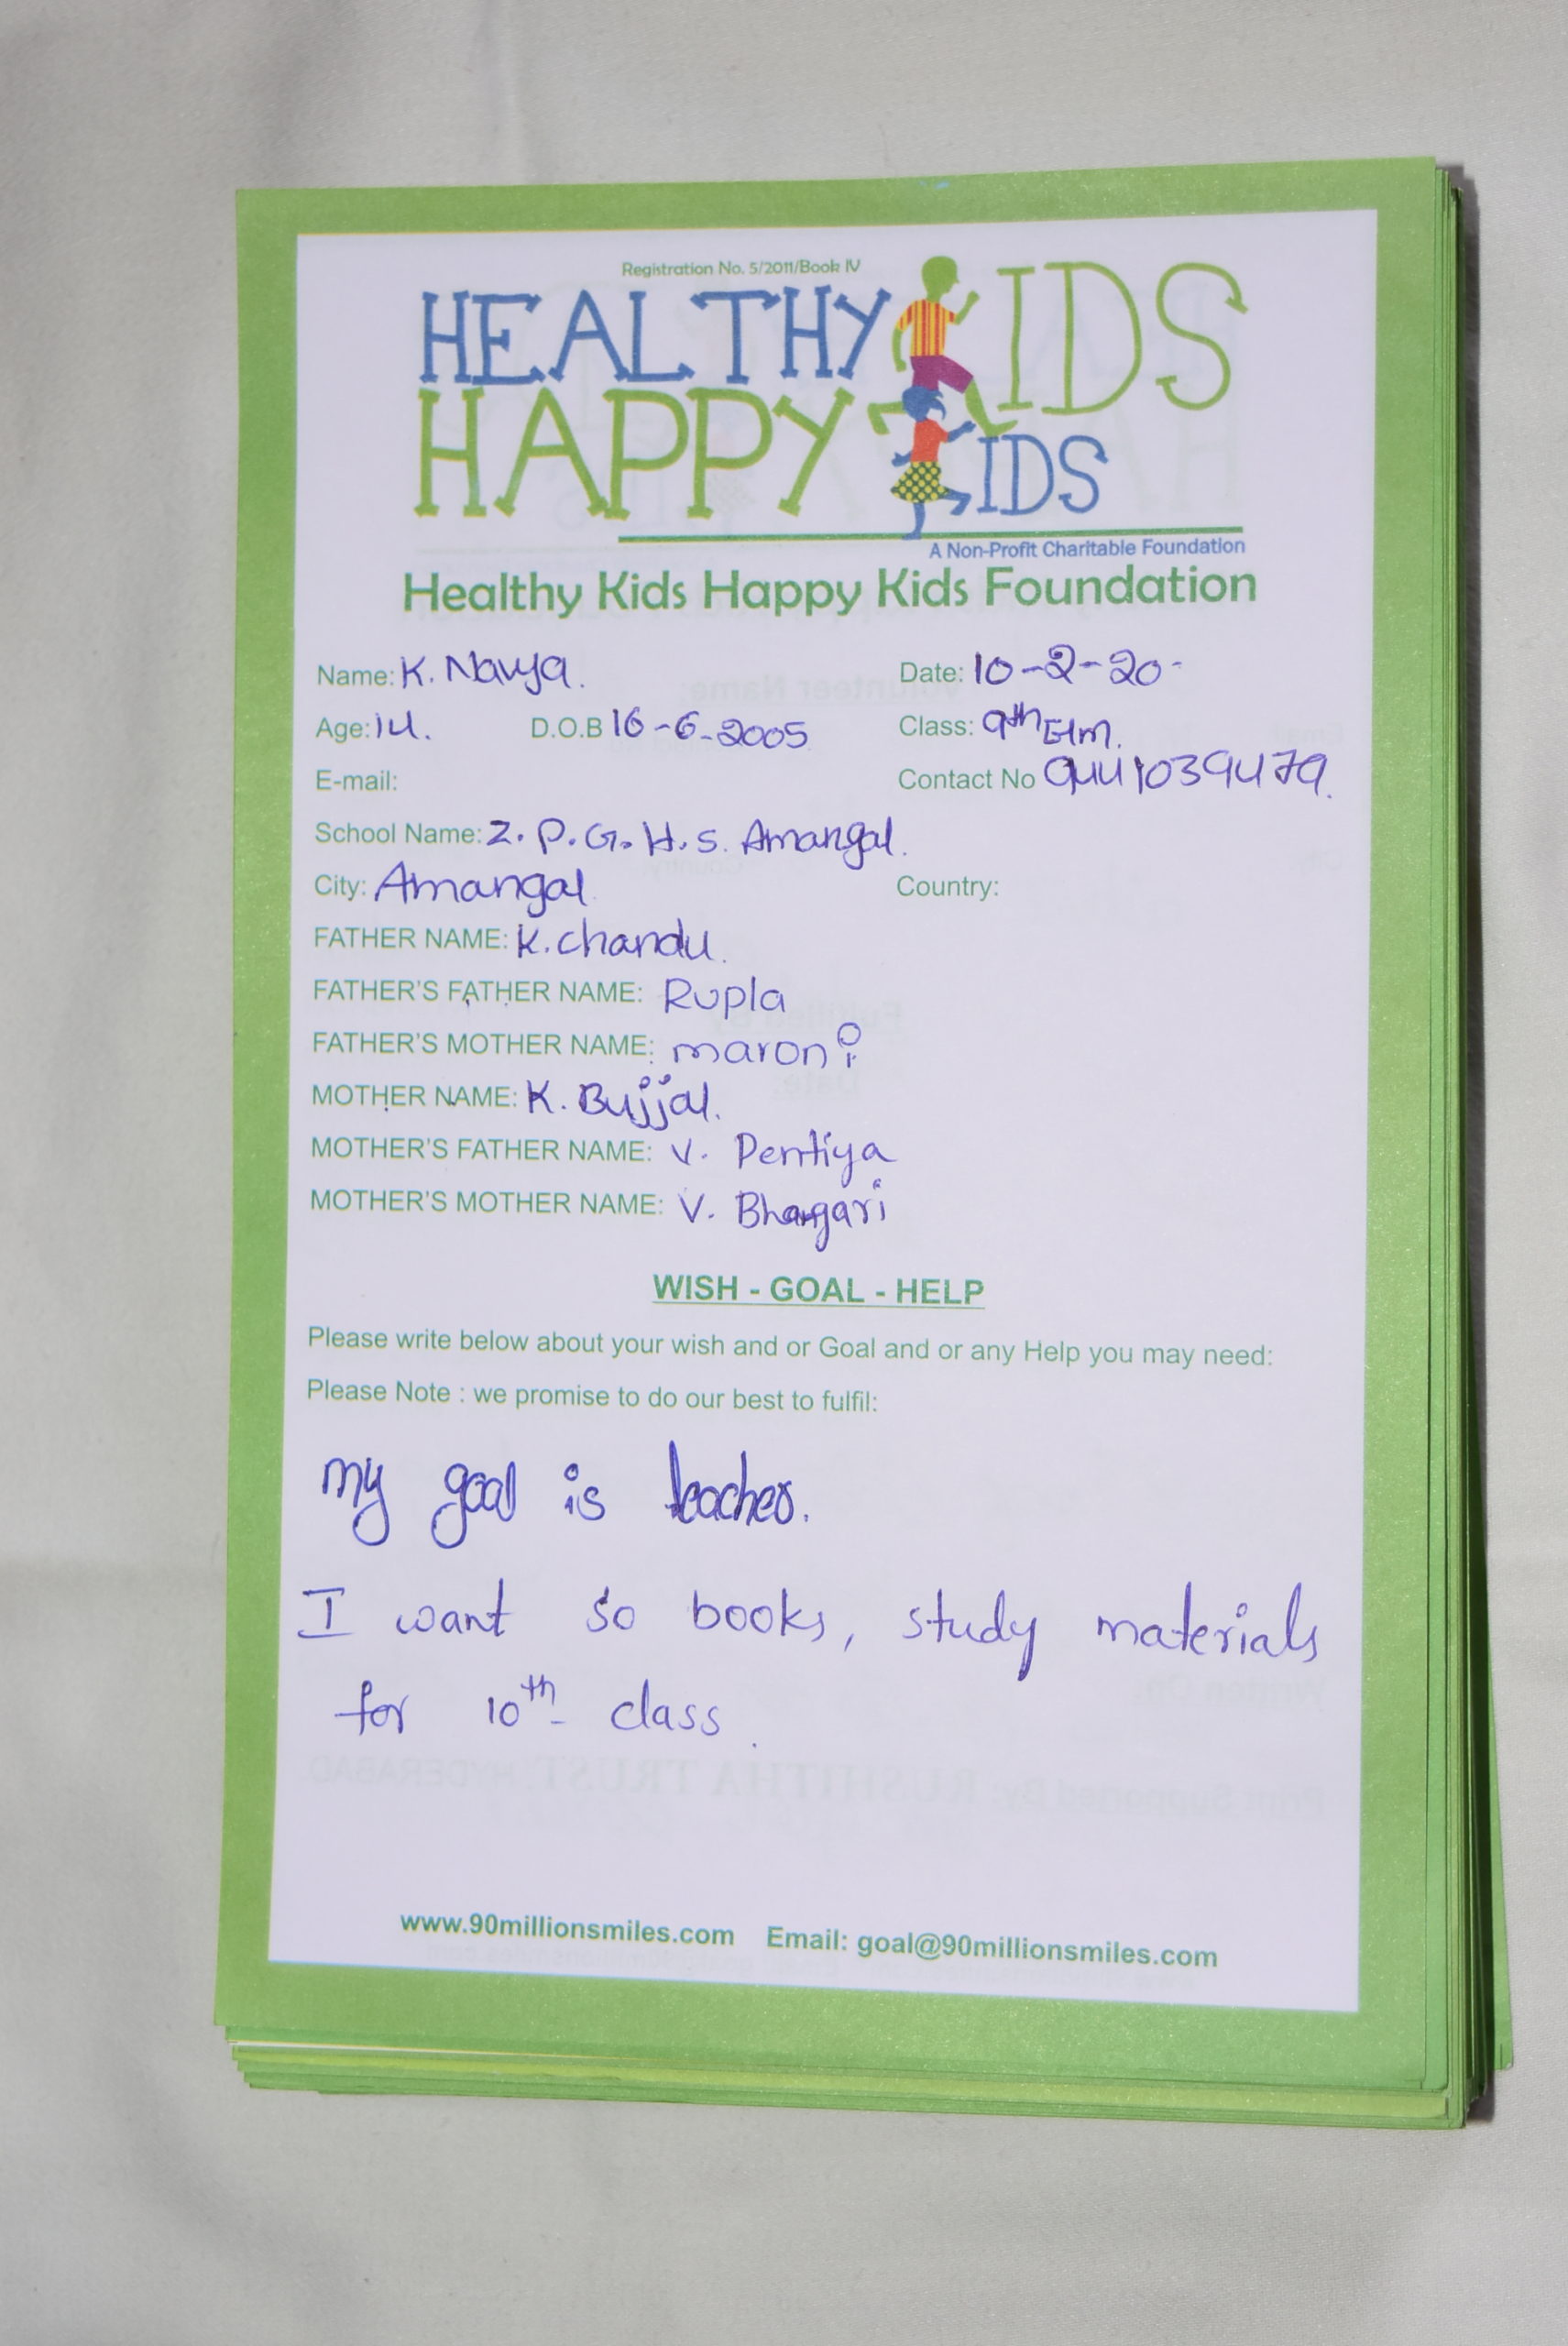 Registration No. 5/2011/Book IV
HEALTHY KIDS
HAPPY KIDS
A Non-Profit Charitable Foundation
Healthy Kids Happy Kids Foundation
Name: K. Navya. Date: 10-2-20-
Age: 14. D.O.B 16-6-2005 Class: 9th E/m.
E-mail: Contact No 9441039479.
School Name: Z. P. G. H. S. Amangal.
City: Amangal Country:
FATHER NAME: K. chandu.
FATHER'S FATHER NAME: Rupla
FATHER'S MOTHER NAME: maroni
MOTHER NAME: K. Bujjal.
MOTHER'S FATHER NAME: V. Pentiya
MOTHER'S MOTHER NAME: V.
WISH - GOAL - HELP
Please write below about your wish and or Goal and or any Help you may need:
Please Note : we promise to do our best to fulfil:
my goal is teacher.
I want so books, study materials
for 10th class.
www.90millionsmiles.com Email: goal@90millionsmiles.com